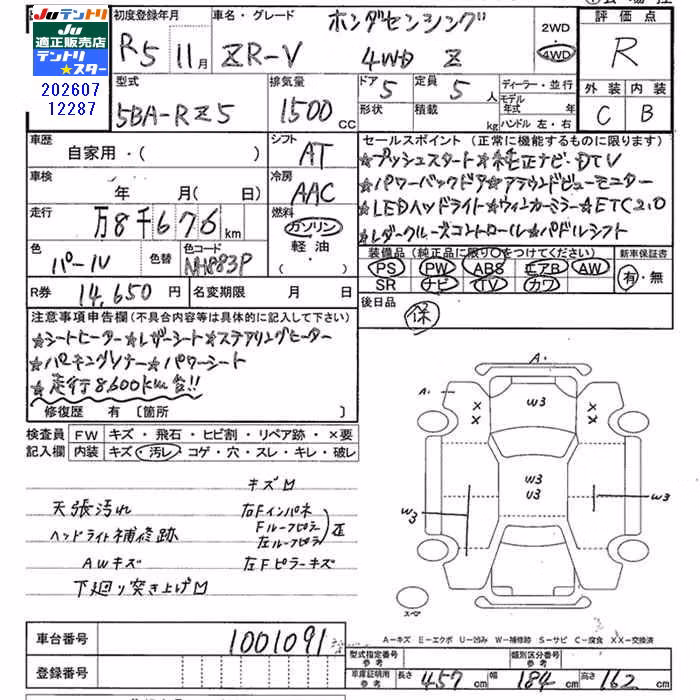 Ju Ju
適正販売店
テントリ
★スター
202607
12287
初度登録年月
R5 11月
車名・グレード
ホンダセンシング
ZR-V 4WD Z
2WD
4WD
評価点
R
型式
5BA-RZ5
排気量
1500 CC
ドア 5
定員 5 人
形状
積載 kg
ディーラー・並行
モデル年式 年
ハンドル 左・右
外装 内装
C B
車歴
自家用・( )
シフト
AT
車検
年 月( 日)
冷房
AAC
走行
万8千676 km
燃料
ガソリン
軽油
・( )
色
パール
色替
色コード
NH883P
R券 14,650 円
名変期限 月 日
セールスポイント (正常に機能するものに限ります)
★プッシュスタート★純正ナビ・DTV
★パワーバックドア★アラウンドビューモニター
★LEDヘッドライト★ウィンカーミラー★ETC2.0
★レダークルーズコントロール★パドルシフト
装備品 (純正品に限り○をつけてください)
PS PW ABS エアB AW
SR ナビ TV カワ
新車保証書
有・無
後日品
保
注意事項申告欄 (不具合内容等は具体的に記入して下さい)
★シートヒーター★レザーシート★ステアリングヒーター
★パーキングソナー★パワーシート
★走行8,600km台!!
修復歴 有 〔箇所 〕
検査員 FW キズ・飛石・ヒビ割・リペア跡・×要
記入欄 内装 キズ・汚レ・コゲ・穴・スレ・キレ・破レ
キズ凹
天張汚れ 右Fインパネ
ヘッドライト補修跡 Fルーフピラ
左ルーフピラ
AWキズ 左Fピラーキズ
下廻り突き上げ凹
A・
A・
W3
××
××
W3
U3
W3
W3
スペア
A-キズ E-エクボ U-凹み W-補修跡 S-サビ C-腐食 XX-交換済
車台番号 1001091
登録番号
型式指定番号
参考
類別区分番号
参考
車庫証明用
参考
長さ 457 cm 幅 184 cm 高さ 162 cm